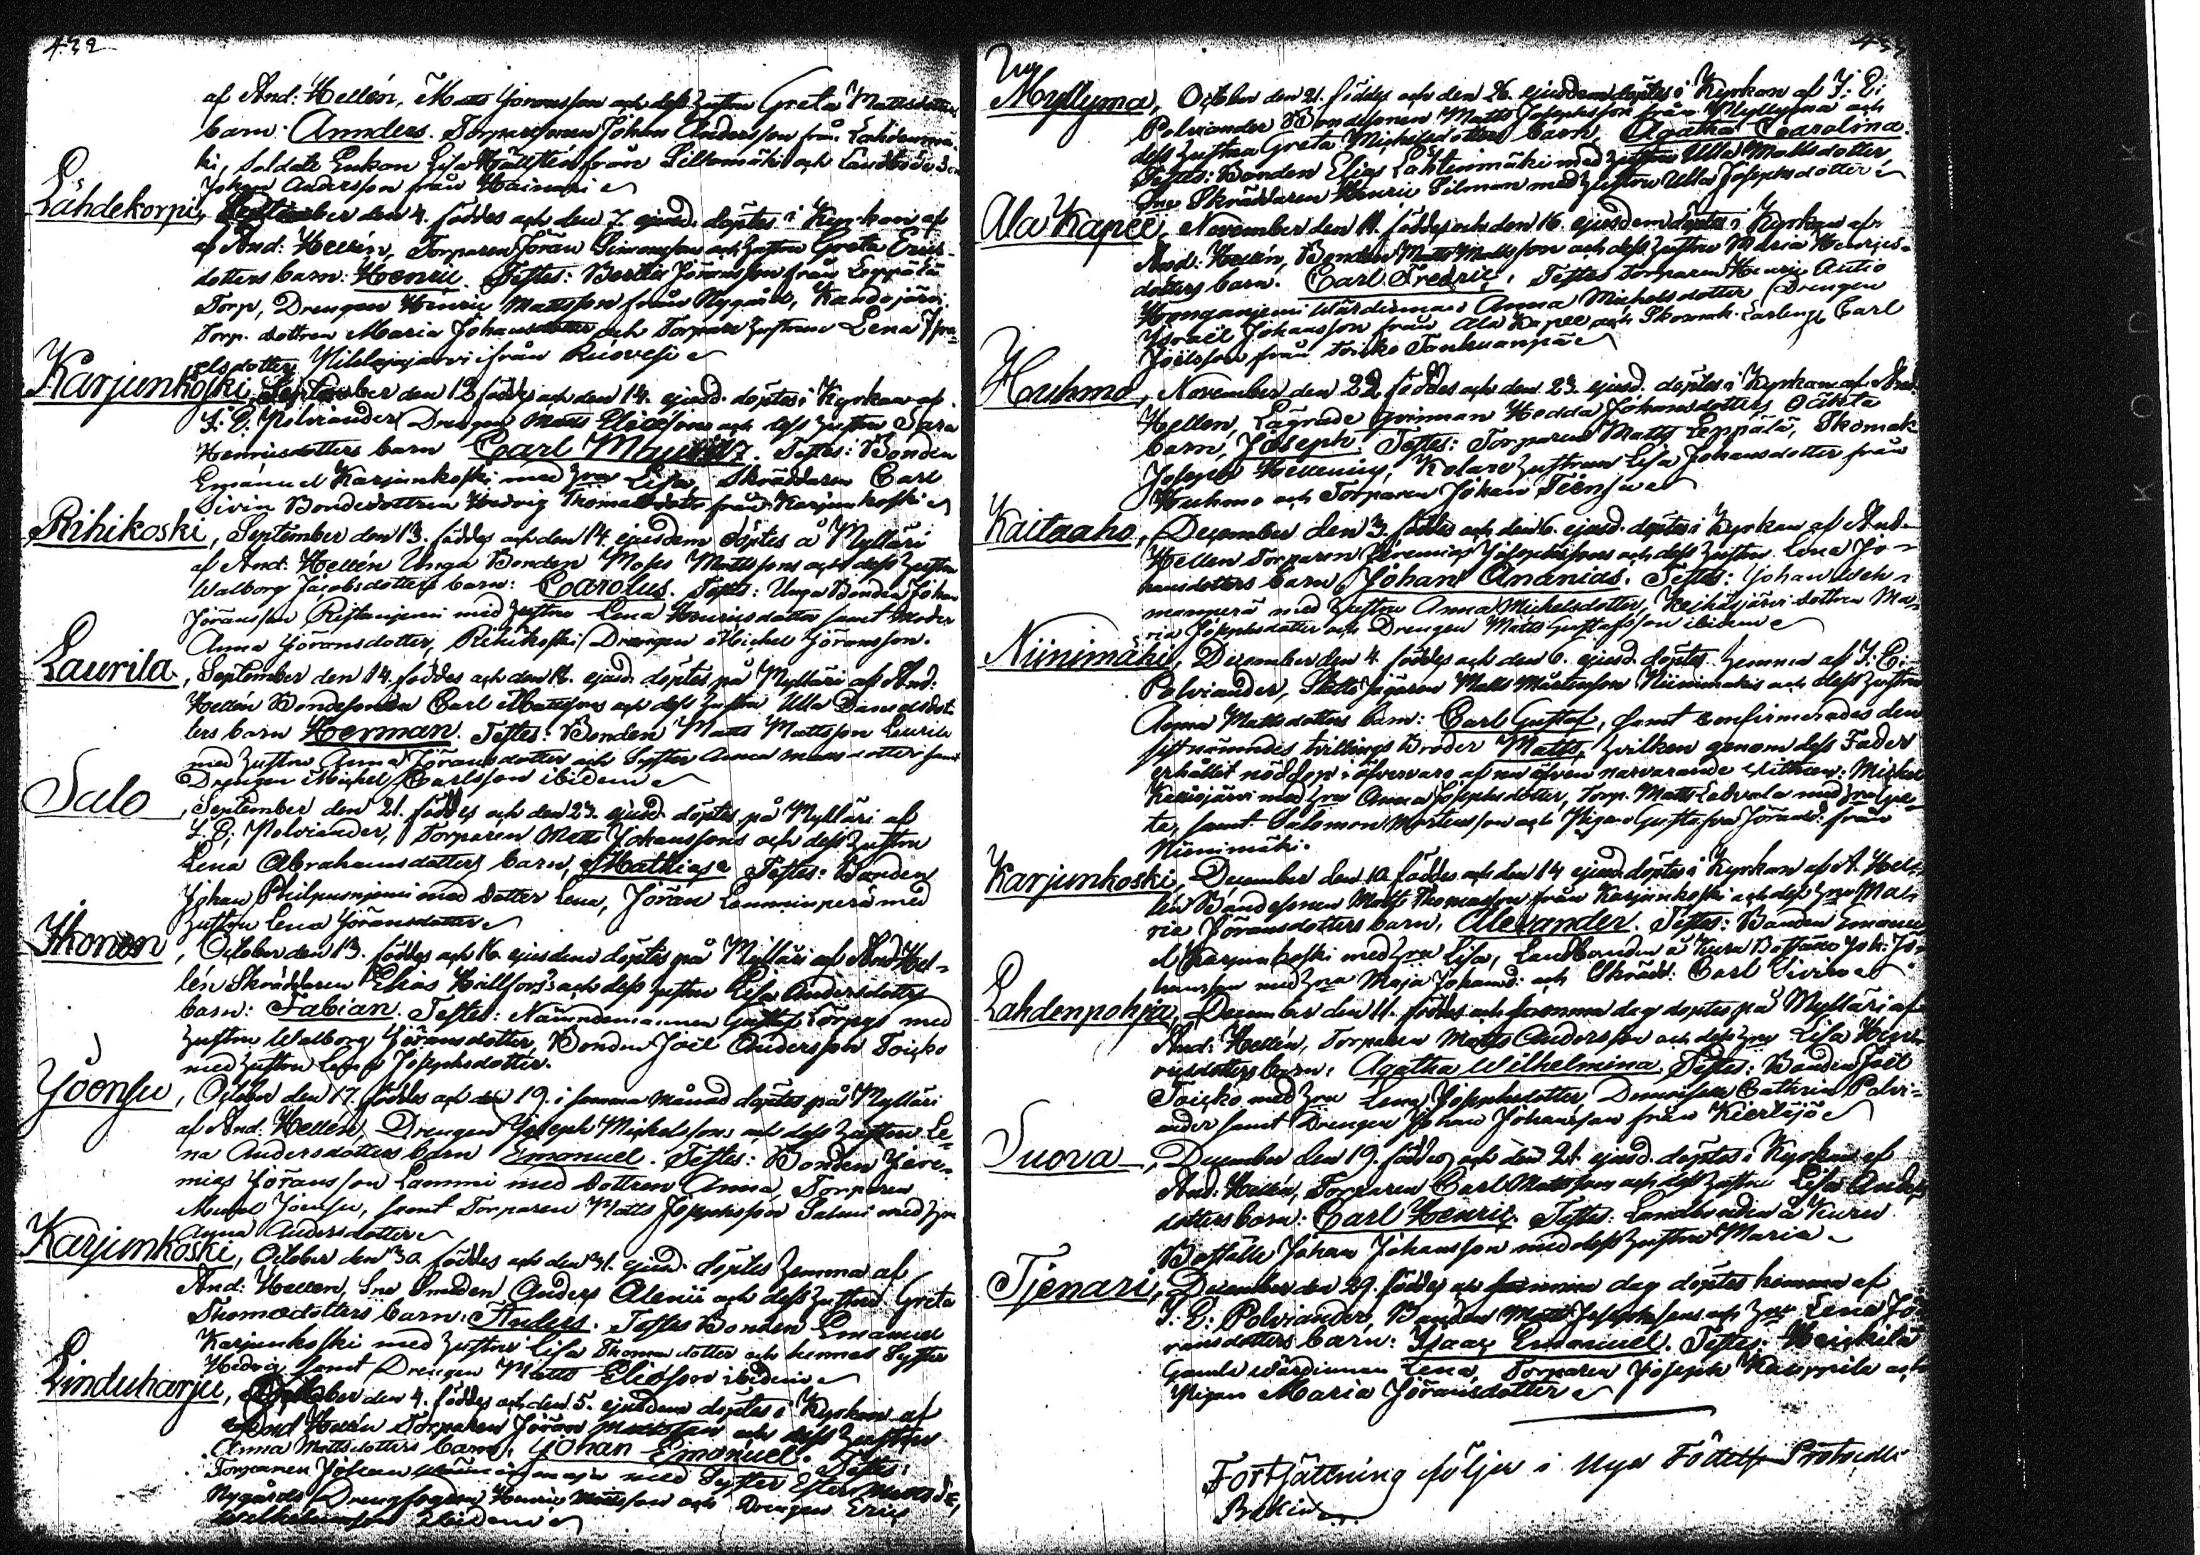 432
af And: Hellén, Matts Joransson och dess hustru Greta Mattsdotters
barn: Annders. Torparesonen Johan Andersson från Lahdenmä-
ki, Soldate Enkan Lisa från Sillanmäki och
Johan Andersson från
Lähdekorpi, September den 4. föddes och den 7. ejusd. döptes i Kyrkan af
af And: Hellén, Torparen Jöran Simonsson och hustru Greta Erics-
dotters barn: Henric. Testes: Jöransson från Leppälä
Torp, Drengen Henric Mattsson från Nygård, Kandojärvi
Torp. dottren Maria Johansdotter och Torpare hustrun Lena Isra-
elsdotter från Ruovesi
Karjunkoski, September den 12 föddes och den 14. ejusd. döptes i Kyrkan af
J: E: Polviander Drengen Matts Eliæsons och dess hustru Sara
Henricsdotters barn Carl Mauritz. Testes: Bonden
Emanuel Karjunkoski med hru Lisa, Skräddaren Carl
Sivin Bondedottren Hedvig Thomasdotter från Karjunkoski
Rihikoski, September den 13. föddes och den 14. ejusdem döptes å Mylläri
af And: Hellén Unga Bonden Moses Mattssons och dess hustru
Walborg Jacobsdotters barn: Carolus. Testes: Unga Bonden Johan
Jöransson Ristaniemi med hustru Lena Henricsdotter samt Moder
Anna Jöransdotter, Rihikoski Drengen Michel Jöransson.
Laurila, September den 14. föddes och den 18. ejusd. döptes på Mylläri af And:
Hellén Bondesonen Carl Mattssons och dess hustru Ulla Danielsdot-
ters barn Herman. Testes: Bonden Matts Mattsson Laurila
med hustru Anna Jöransdotter och Syster Anna Mattsdotter samt
Drengen Michel Carlsson ibidem
Salo, September den 21. föddes och den 23. ejusd. döptes på Mylläri af
J. E. Polviander, Torparen Matts Johanssons och dess hustru
Lena Abrahamsdotters barn, Mathias Testes: Bonden
Johan med dotter Lena, Jöran Lamminperä med
hustru Lena Jöransdotter
Ikonen, October den 13. föddes och 16. ejusdem döptes på Mylläri af And: Hel-
lén Skräddaren Elias Hällfors och dess hustru Lisa Andersdotters
barn: Fabian. Testes: Nämndemannen Gustaf med
hustru Walborg Jöransdotter, Bonden Joel Andersson Toicko
med hustru Lena Josephsdotter.
Jöonsu, October den 17. föddes och den 19. i samma månad döptes på Mylläri
af And: Hellén, Drengen Joseph Michelssons och dess hustru Le-
na Andersdotters barn Emanuel. Testes: Bonden Jere-
mias Jöransson Lammi med dottren Anna, Torparen
Joensu, samt Torparen Matts Josephsson Salmi med hru
Anna Andersdotter
Karjunkoski, October den 30. föddes och den 31. ejusd. döptes hemma af
And: Hellén, Sne Smeden Anders Alenii och dess hustru Greta
Thomædotters barn: Anders. Testes Bonden Emanuel
Karjunkoski med hustru Lisa Thomasdotter och hennes Syster
Hedvig samt Drengen Matts Eliæsson ibidem
Linduharju, October den 4. föddes och den 5. ejusdem döptes i Kyrkan af
And Hellén Torparen Jöran Mattsson och dess hustru
Anna Mattsdotters barn: Johan Emanuel. Testes:
Torparen Johan med Syster Ester
Nygårds Drengfogden Henric Mattsson och Drengen Eric
ibidem
Myllymä, October den 21. föddes och den 26. ejusdem döptes i Kyrkan af J: E:
Polviander Bondesonen Matts Josephsson från Myllymä och
dess hustru Greta Michelsdotters barn, Agatha Carolina.
Testes: Bonden Elias Lähtenmäki med hustru Ulla Mattsdotter,
Sne Skräddaren Henric Silman med hustru Ulla Josephsdotter
Ala Kapee, November den 11. föddes och den 16. ejusdem döptes i Kyrkan af
And: Hellén, Bonden Matts Mattsson och dess hustru Maria Henrics-
dotters barn. Carl Fredric, Testes Torparen Henric Antio
Wärdinnan Anna Michelsdotter Drengen
Israel Johansson från Ala Kapee och Carl
Joelsson från Toicko
Huhmo, November den 22. föddes och den 23. ejusd. döptes i Kyrkan af And
Hellén, Lägrade qvinnan Hedda Johansdotters Oäkta
barn, Joseph. Testes: Torparen Matts Leppälä, Skomak
Joseph Hellenius, Kolare hustrun Lisa Johansdotter från
Huhmo och Torparen Johan
Kaitaaho, December den 3. föddes och den 6. ejusd. döptes i Kyrkan af And
Hellén Torparen Jeremias Josephssons och dess hustru Lena Jo-
hansdotters barn Johan Ananias. Testes: Johan Weh-
manperä med hustru Anna Michelsdotter, dottren Ma-
ria Josephsdotter och Drengen Matts Gustafsson ibidem
Niinimäki, December den 4. föddes och den 6. ejusd. döptes hemma af J: E:
Polviander, Matts Mårtensson Niinimäkis och dess hustru
Anna Mattsdotters barn: Carl Gustaf, samt confirmerades den
sistnämndes tvillings broder Matts, hvilken genom dess Fader
erhållit nöddop i öfvervaro af nu äfven närvarande vittnen: Michel
Keisojärvi med hru Anna Josephsdotter, Torp. Matts med hru
samt Salomon Mårtensson och Pigan Gustafva Jöransd: från
Niinimäki.
Karjunkoski, December den 10 föddes och den 14 ejusd. döptes i Kyrkan af A. Hel-
lén Bondesonen Matts Thomasson från Karjunkoski och dess hru Ma-
ria Jöransdotters barn, Alexander. Testes: Bonden Emanu-
el Karjunkoski med hru Lisa, Landbonden å Kuru Boställe Joh: Jo-
hansson med hru Maja Johansd: och Skrädd: Carl Sivin
Lahdenpohja, December den 11. föddes och samma dag döptes på Mylläri af
And: Hellén, Torparen Matts Andersson och dess hru Lisa Hen-
ricsdotters barn: Agatha Wilhelmina Testes: Bonden Joel
Toicko med hru Lena Josephsdotter Demoiselle Cathrin Polvi-
ander samt Drengen Johan Johansson från
Suova, December den 19. föddes och den 21. ejusd. döptes i Kyrkan af
And: Hellén, Torparen Carl Mattsson och dess hustru Lisa Anders
dotters barn: Carl Henric. Testes: Landbonden å Kuru
Boställe Johan Johansson med dess hustru Maria
Tjenari, December den 29. föddes och samma dag döptes hemma af
J: E: Polviander, Bonden Matts Josephssons och hru Lena Jö-
ransdotters barn: Isaac Emanuel. Testes: Heickilä
Gamla wärdinnan Lena, Torparen Joseph Kauppila och
Pigan Maria Jöransdotter
Fortsättning följer i Nya Födelse Protocolls
Boken